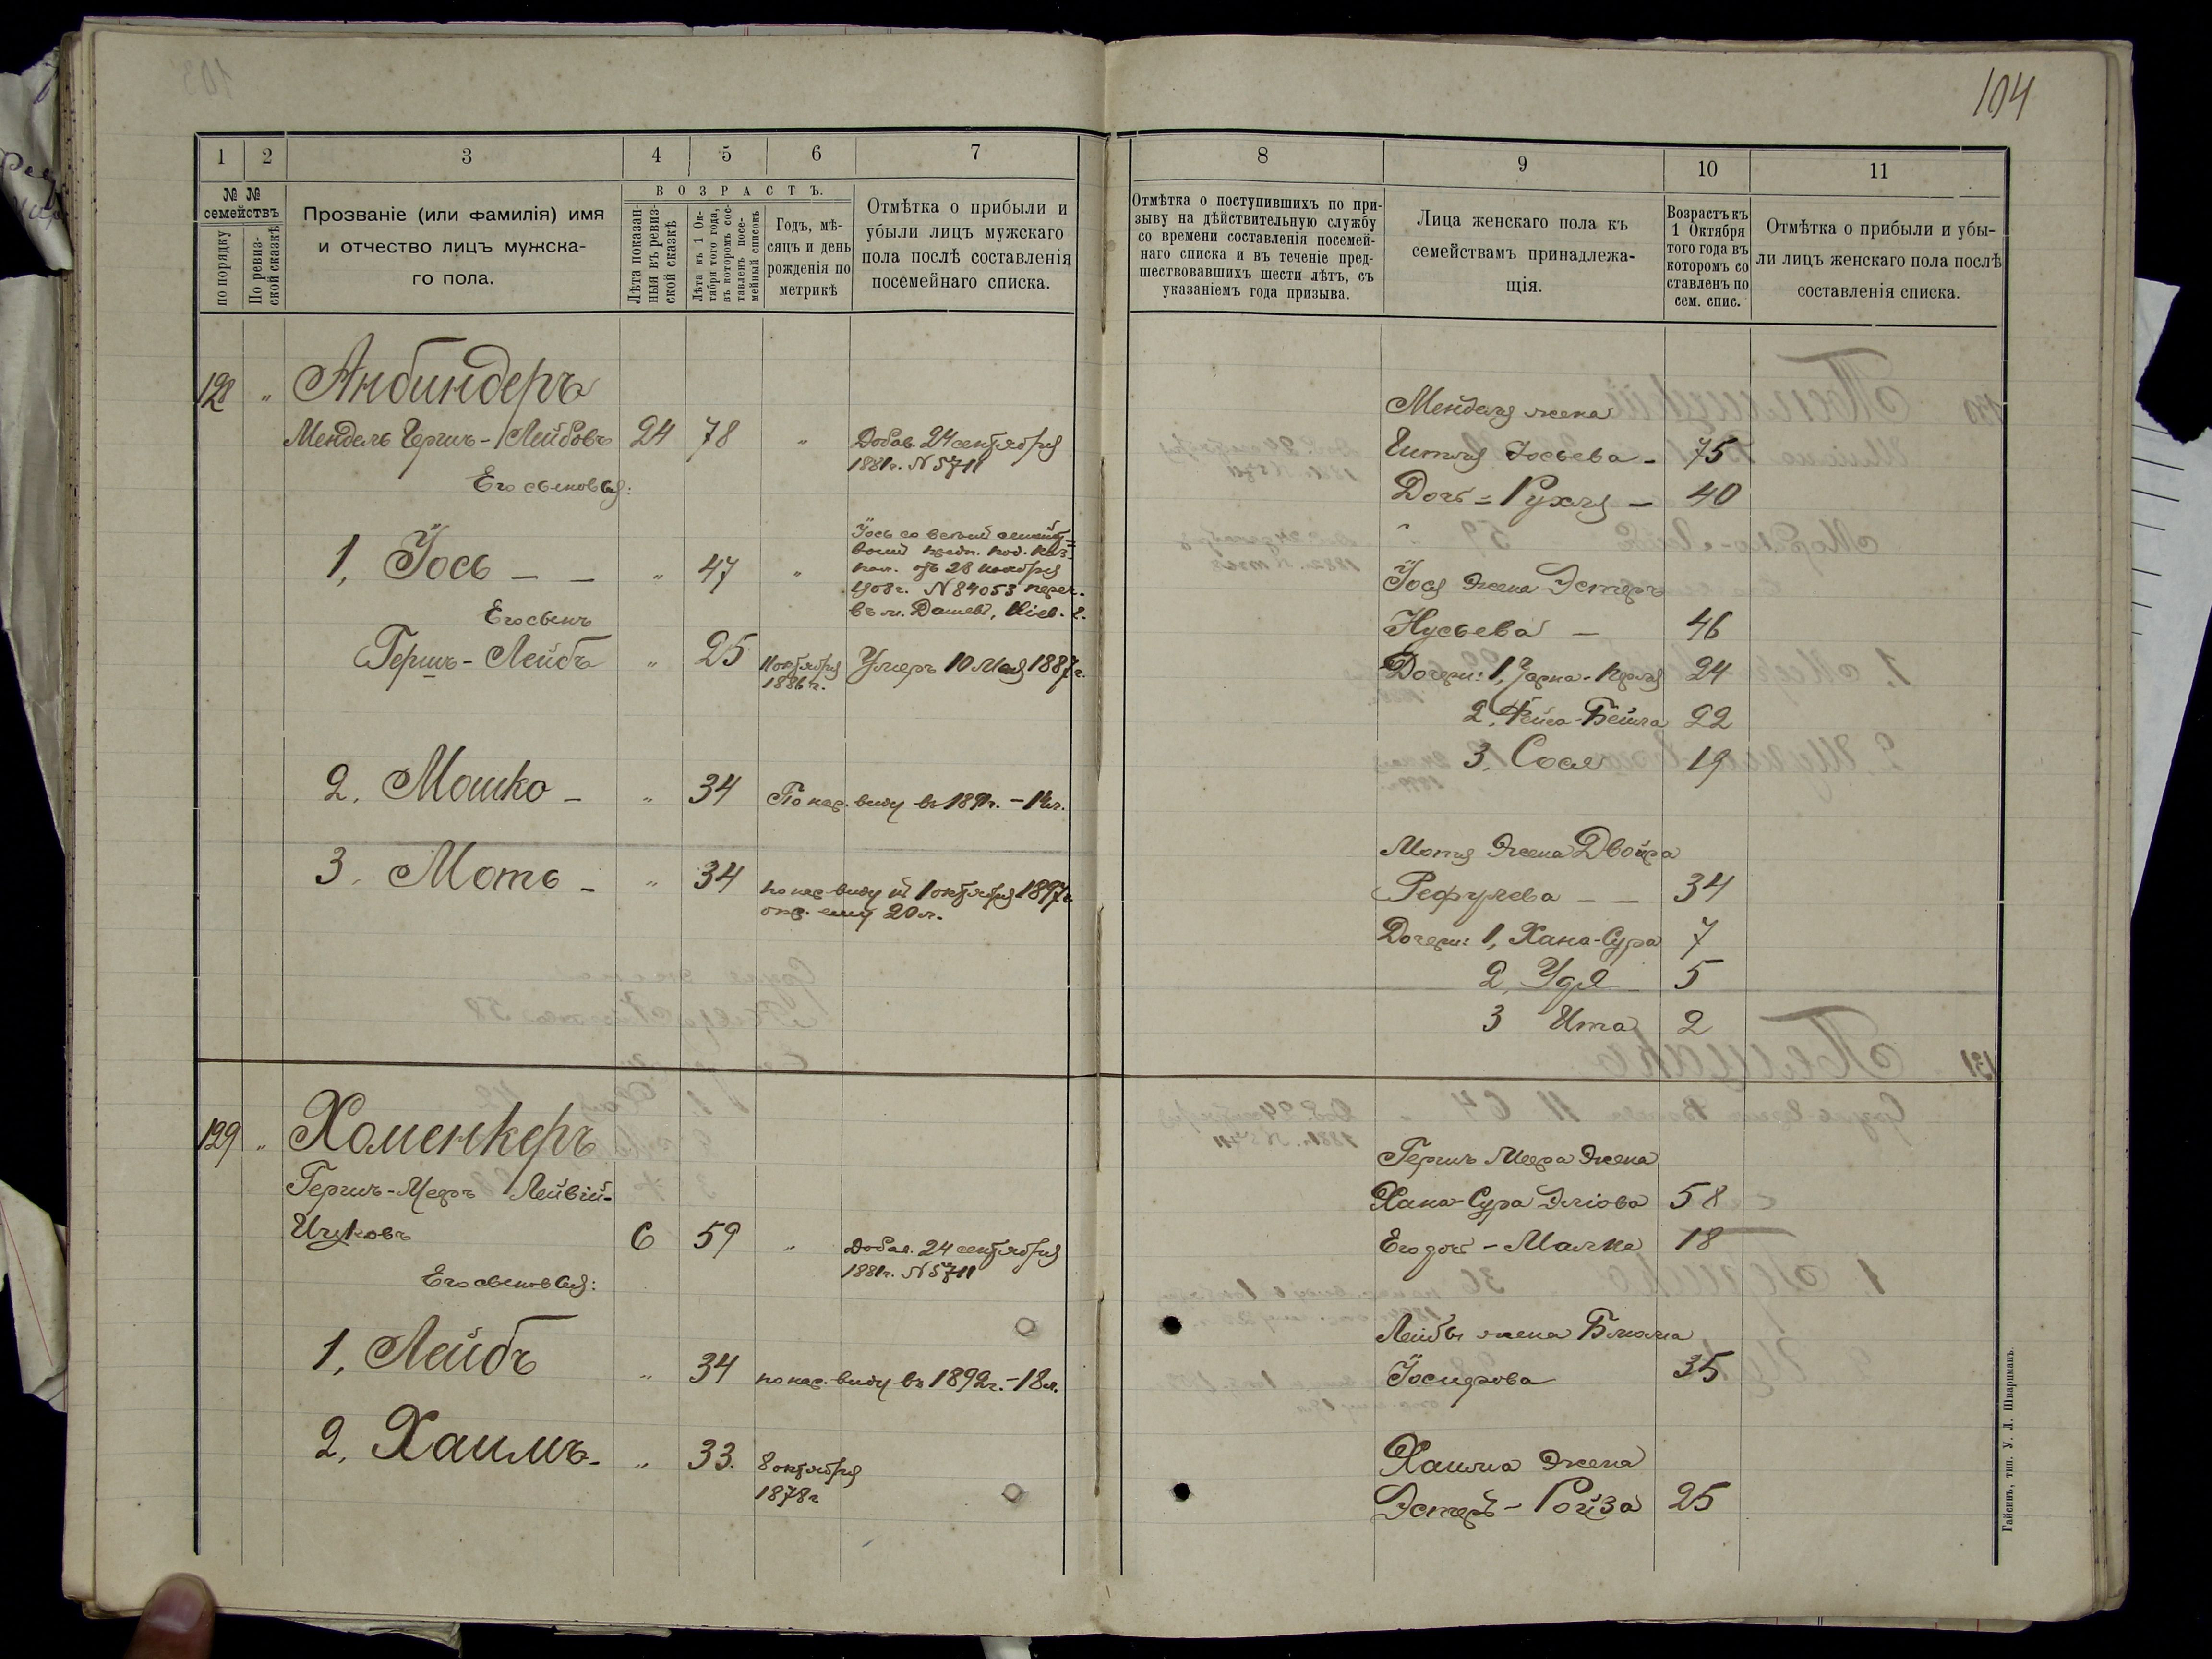 104
1 2 3 4 5 6 7
№ №
семействъ
по порядку
По ревиз-
ской сказкѣ
Прозваніе (или фамилія) имя
и отчество лицъ мужска-
го пола.
ВОЗРАСТЪ.
Лѣта показан-
ныя въ ревиз-
ской сказкѣ
Лѣта къ 1 Ок-
тября того года,
въ которомъ сос-
тавленъ посе-
мейный списокъ
Годъ, мѣ-
сяцъ и день
рожденія по
метрикѣ
Отмѣтка о прибыли и
убыли лицъ мужскаго
пола послѣ составленія
посемейнаго списка.
128 „ Анбиндеръ
Мендель Гершъ-Лейбовъ 24 78 „ Добав. 24 сентября
1881г. N 5711
Его сыновья:
1, Іось — — „ 47 „
Іось со всемъ семейст-
вомъ
пал. отъ 28 ноября
1908г. N 84053 переч.
въ м. Дашевъ, Кіев. г.
Его сынъ
Гершъ-Лейбъ „ 25 11 октября
1886г.
Умеръ 10 Мая 1887г.
2. Мошко — „ 34 По нар. виду въ 1891г. —
3. Моть — „ 34 по нар. виду къ 1 октября 1897г.
опр. ему 20 л.
129 „ Хаменкеръ
Гершъ-Мееръ Лейвій-
Ицковъ 6 59 „ Добав. 24 сентября
1881г. N 5711
Его сыновья:
1, Лейбъ „ 34 по нар. виду въ 1892г. — 18 л.
2, Хаимъ — „ 33. 8 октября
1878г
8 9 10 11
Отмѣтка о поступившихъ по при-
зыву на дѣйствительную службу
со времени составленія посемей-
наго списка и въ теченіе пред-
шествовавшихъ шести лѣтъ, съ
указаніемъ года призыва.
Лица женскаго пола къ
семействамъ принадлежа-
щія.
Возрастъ къ
1 Октября
того года въ
которомъ со
ставленъ по
сем. спис.
Отмѣтка о прибыли и убы-
ли лицъ женскаго пола послѣ
составленія списка.
Менделя жена
Іосьева — 75
Дочь = Рухля — 40
Іося жена Эстеръ
Нусьева — 46
Дочери: 1, 24
2, Фейга-Бейла 22
3, Сося 19
Мотя жена Двойра
Рефулева — — 34
Дочери: 1, Хана-Сура 7
2, Удя 5
3 Ита 2
Гершъ Меера жена
Хана-Сура Эліова 58
Его дочь — Малка 18
Лейбы жена Блюма
Іосифова 35
Хаима жена
Эстеръ — Ройза 25
Гайсинъ, тип. У. Л. Шварцманъ